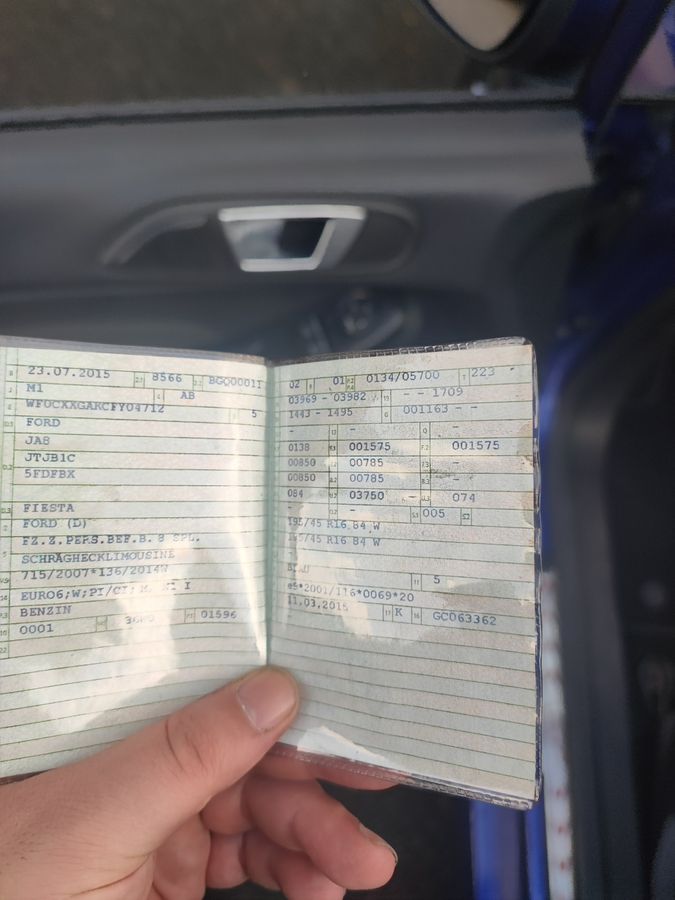 B 23.07.2015 2.1 8566 2.2 BGQ00011
J M1 4 AB
E WF0CXXGAKCFY04712 3 5
D.1 FORD
JA8
D.2 JTJB1C
5FDFBX
D.3 FIESTA
2 FORD (D)
5 FZ.Z.PERS.BEF.B. 8 SPL.
SCHRÄGHECKLIMOUSINE
V.9 715/2007*136/2014W
14 EURO6;W;PI/CI; M, N1 I
P.3 BENZIN
10 0001 P.1 01596
22
02 01 0134/05700 T 223 -
03969 - 03982 - - 1709
1443 - 1495 G 001163 - -
- 13 - Q -
0138 001575 F.2 001575
00850 00785 7.3 -
00850 8.2 00785 8.3 -
084 03750 - 074
- - S.1 005 S.2
195/45 R16 84 W
195/45 R16 84 W
-
BLAU 11 5
e9*2001/116*0069*20
11.03.2015 17 K 16 GC063362